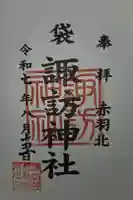 奉拝 赤羽北
袋
諏訪神社
令和七年八月十一日